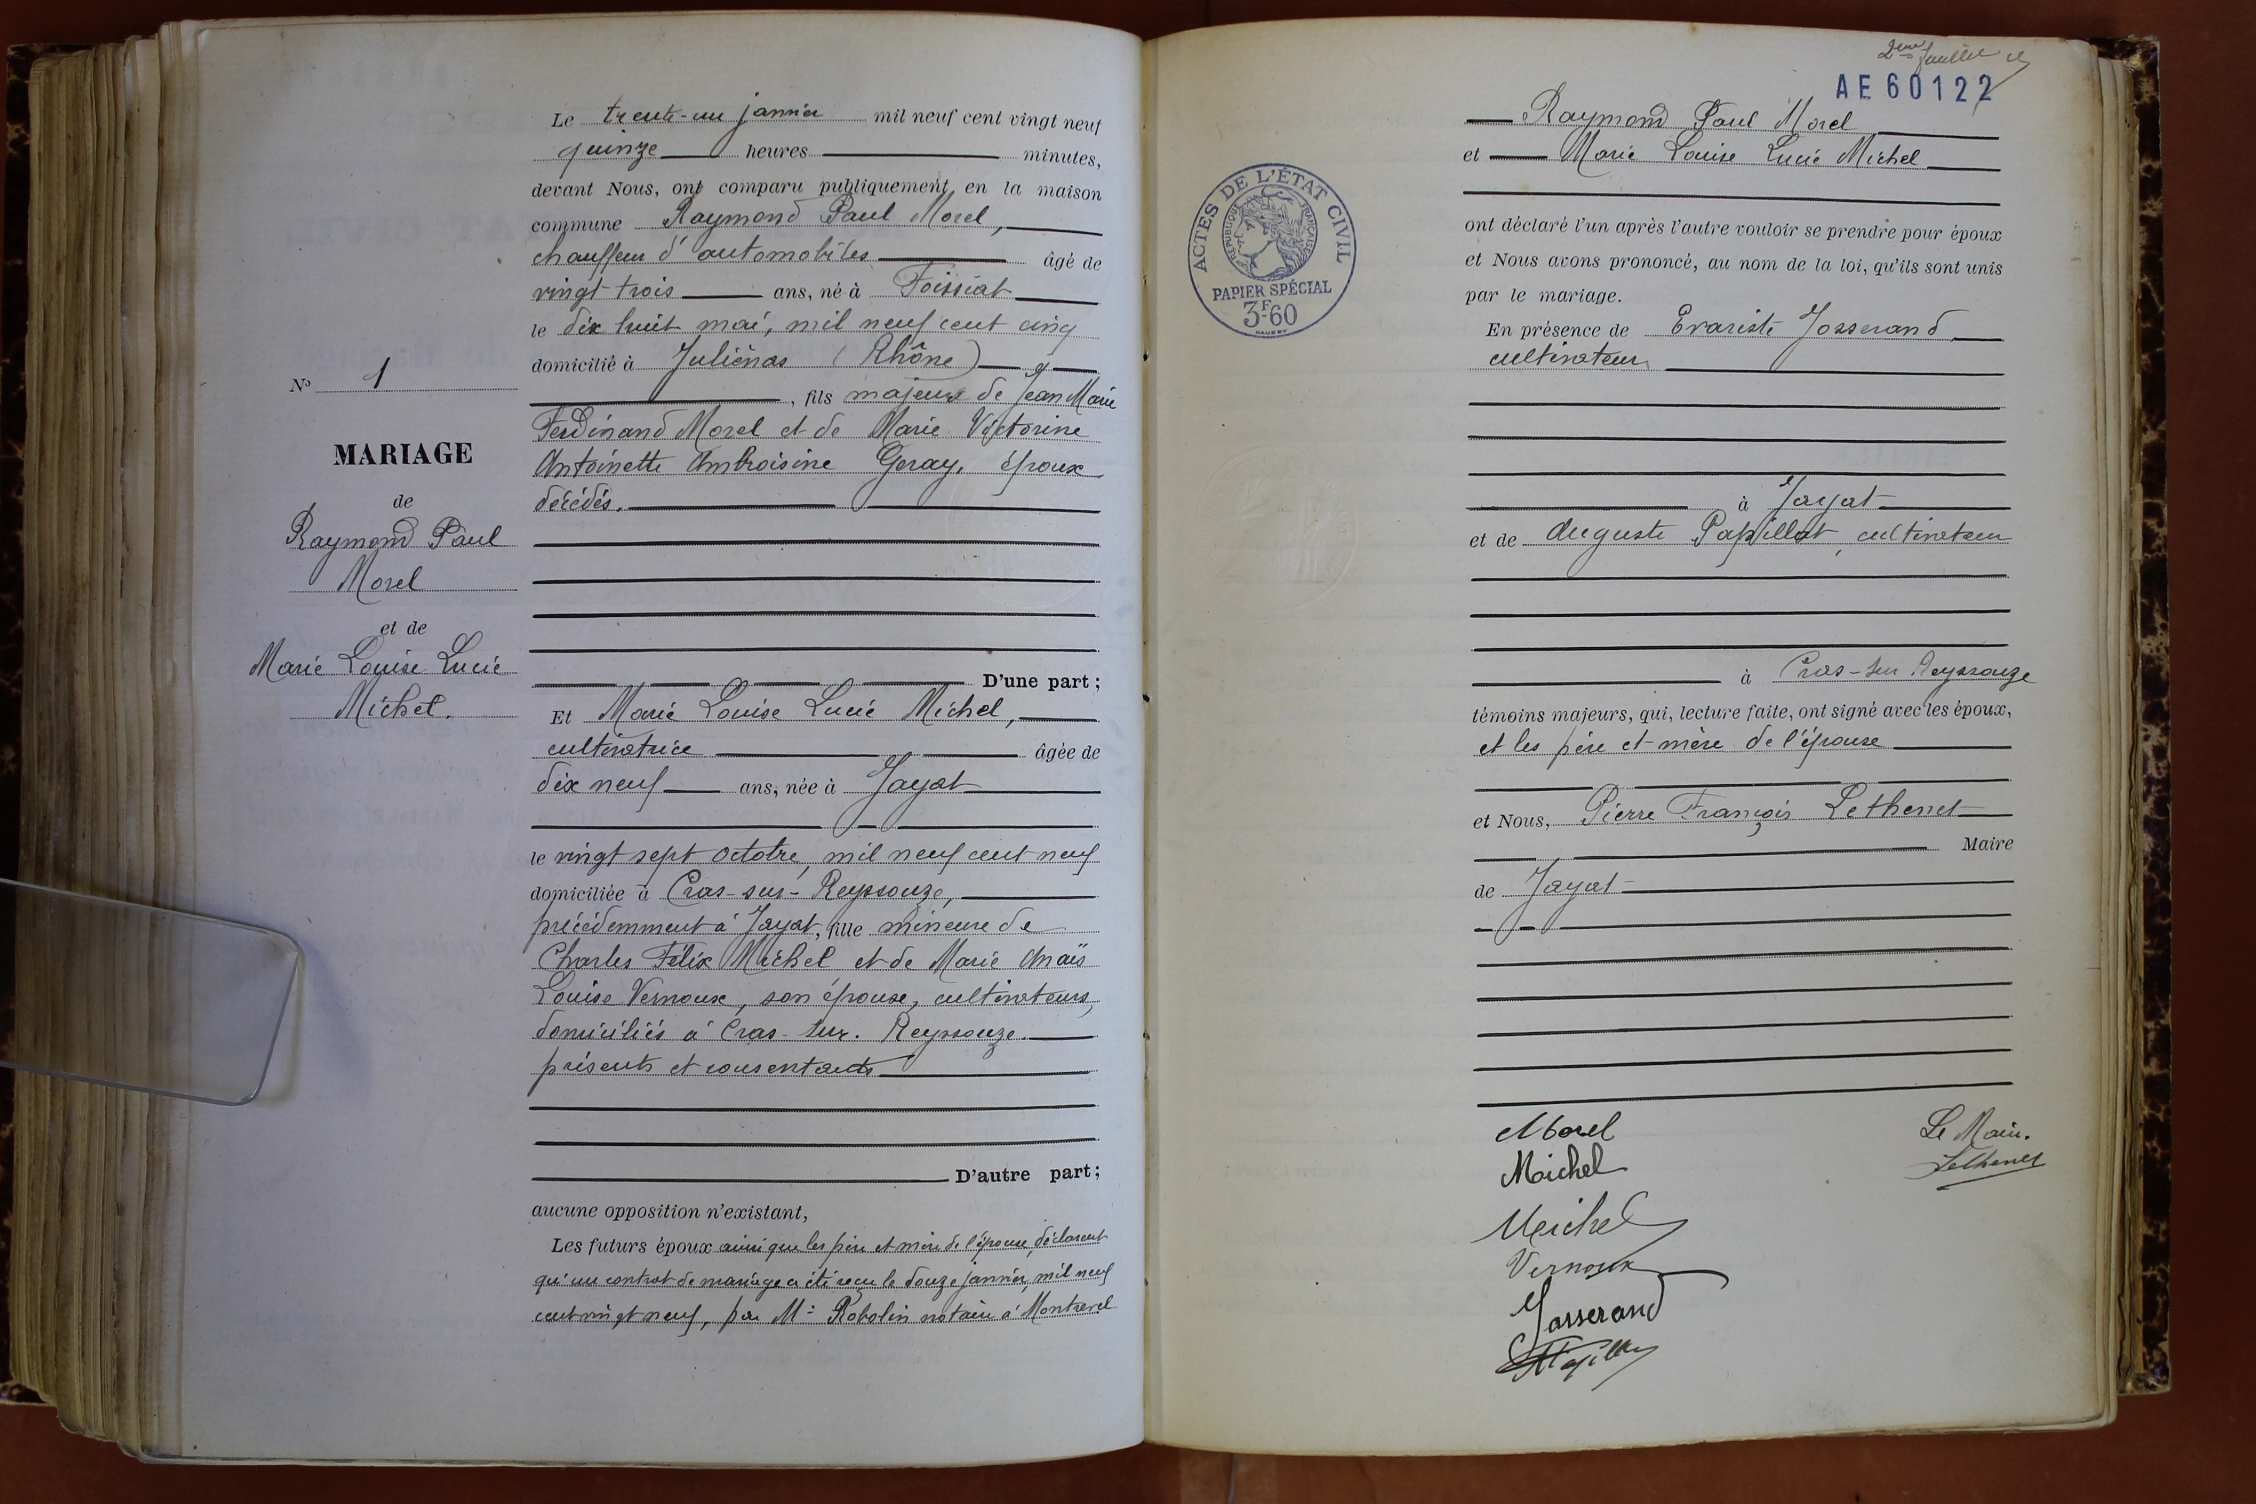 Le trente-un janvier mil neuf cent vingt neuf
quinze heures minutes,
devant Nous, ont comparu publiquement en la maison
commune Raymond Paul Morel,
chauffeur d'automobiles âgé de
vingt trois ans, né à Foissiat
le dix huit mai, mil neuf cent cinq
domicilié à Juliénas (Rhône)
, fils majeur de Jean Marie
Ferdinand Morel et de Marie Victorine
Antoinette Ambroisine Goray, époux
décédés.
D'une part;
Et Marie Louise Lucie Michel,
cultivatrice âgée de
dix neuf ans, née à Jayat
le vingt sept octobre, mil neuf cent neuf
domiciliée à Cras-sur-Reyssouze,
précédemment à Jayat, fille mineure de
Charles Félix Michel et de Marie Anaïs
Louise Vernoux, son épouse, cultivateurs,
domiciliés à Cras-sur-Reyssouze.
présents et consentants
D'autre part;
aucune opposition n'existant,
Les futurs époux ainsi que les père et mère de l'épouse, déclarent
qu'un contrat de mariage a été reçu le douze janvier, mil neuf
cent vingt neuf, par Me Robolin notaire à Montrevel
No 1
MARIAGE
de
Raymond Paul
Morel
et de
Marie Louise Lucie
Michel.
2eme feuillet
AE 60122
Raymond Paul Morel
et Marie Louise Lucie Michel
ACTES DE L'ÉTAT CIVIL
RÉPUBLIQUE FRANÇAISE
PAPIER SPÉCIAL
3F.60
ont déclaré l'un après l'autre vouloir se prendre pour époux
et Nous avons prononcé, au nom de la loi, qu'ils sont unis
par le mariage.
En présence de Evariste Josserand
cultivateur
à Jayat
et de Auguste Papillat, cultivateur
à Cras-sur Reyssouze
témoins majeurs, qui, lecture faite, ont signé avec les époux,
et les père et mère de l'épouse
et Nous, Pierre François Lethenet
Maire
de Jayat
Morel
Michel
Michel
Vernoux
Josserand
Le Maire.
Lethenet